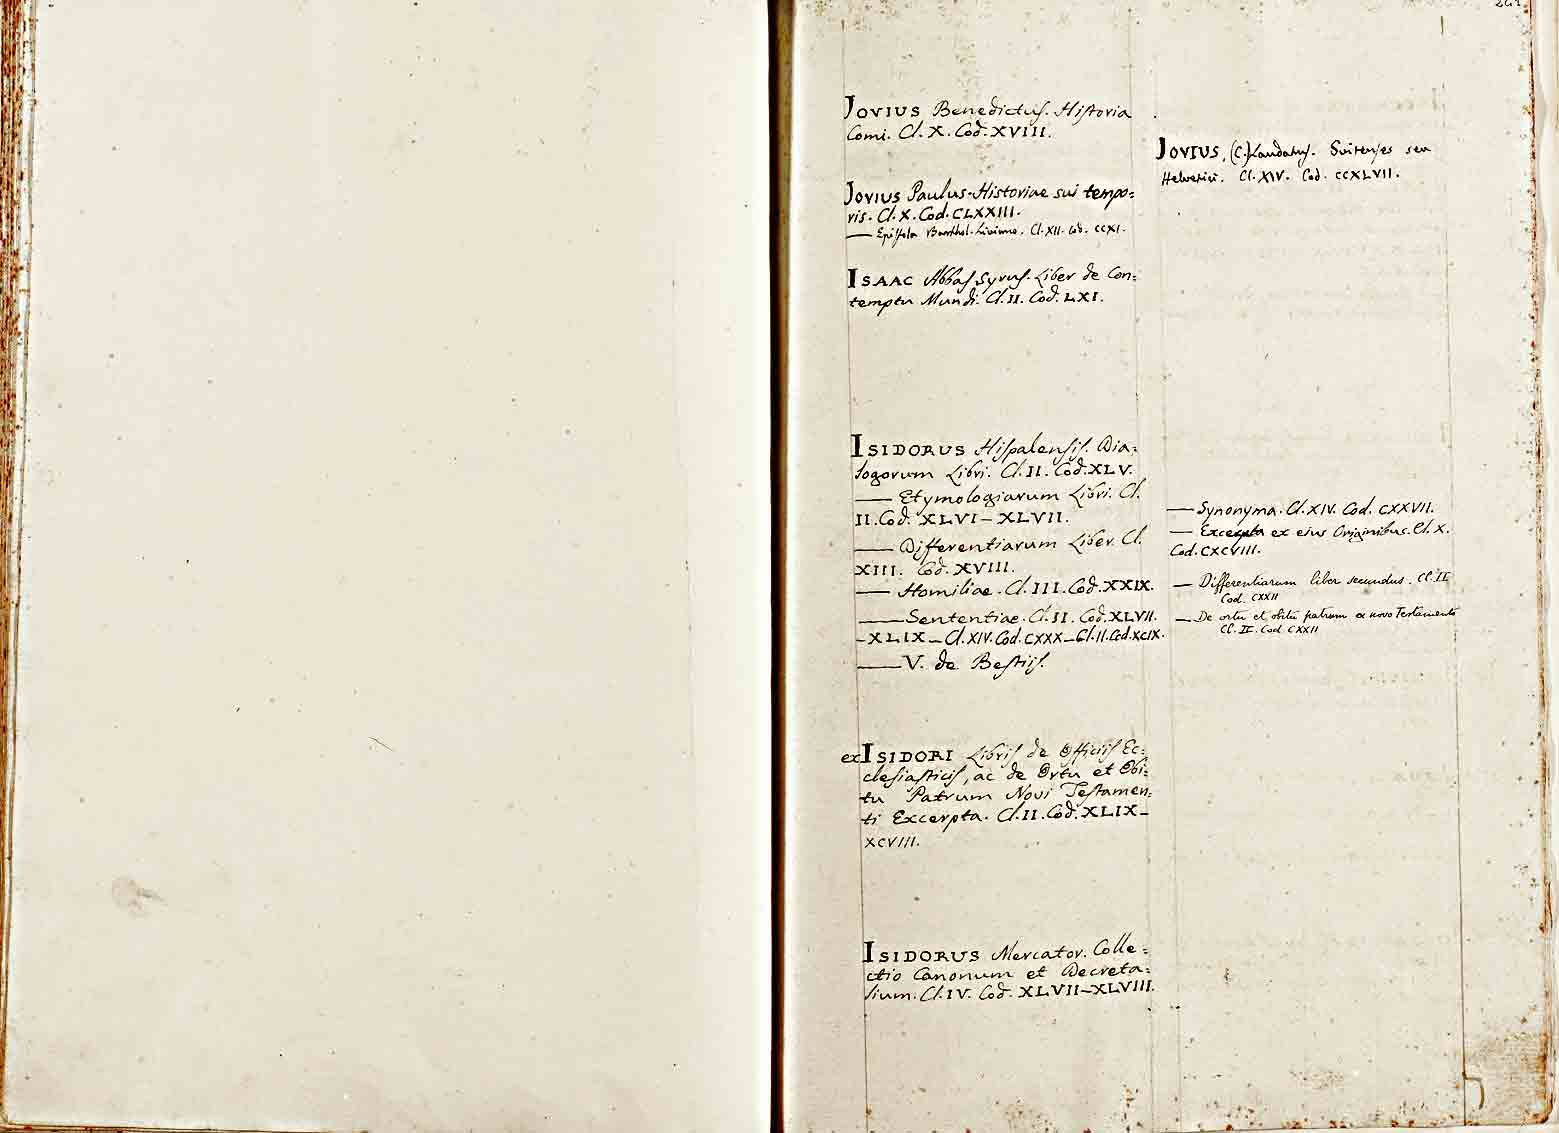 JOVIUS Benedictus. Historia
Comi. Cl. X. Cod. XVIII.
JOVIUS Paulus. Historiae sui tempo=
ris. Cl. X. Cod. CLXXIII.
— Epistola Barthol. Liviano. Cl. XII. Cod. CCXI.
ISAAC Abbas Syrus. Liber de Con=
temptu Mundi. Cl. II. Cod. LXI.
ISIDORUS Hispalensis. Dia=
logorum Libri. Cl. II. Cod. XLV.
— Etymologiarum Libri. Cl.
II. Cod. XLVI – XLVII.
— Differentiarum Liber. Cl.
XIII. Cod. XVIII.
— Homiliae. Cl. III. Cod. XXIX.
— Sententiae. Cl. II. Cod. XLVII.
– XLIX – Cl. XIV. Cod. CXXX – Cl. II. Cod. XCIX.
— V. de Bestiis.
ex ISIDORI Libris de Officiis Ec=
clesiasticis, ac de Ortu et Obi=
tu Patrum Novi Testamen=
ti Excerpta. Cl. II. Cod. XLIX –
XCVIII.
ISIDORUS Mercator. Colle=
ctio Canonum et Decreta=
lium. Cl. IV. Cod. XLVII – XLVIII.
JOVIUS, (C.) Laudatus. Suitenses seu
Helvetici. Cl. XIV. Cod. CCXLVII.
— Synonyma. Cl. XIV. Cod. CXXVII.
— Excerpta ex eius Originibus. Cl. X.
Cod. CXCVIII.
— Differentiarum liber secundus. Cl. II
Cod. CXXII
— De ortu et obitu patrum e novo Testamento
Cl. II. Cod. CXXII